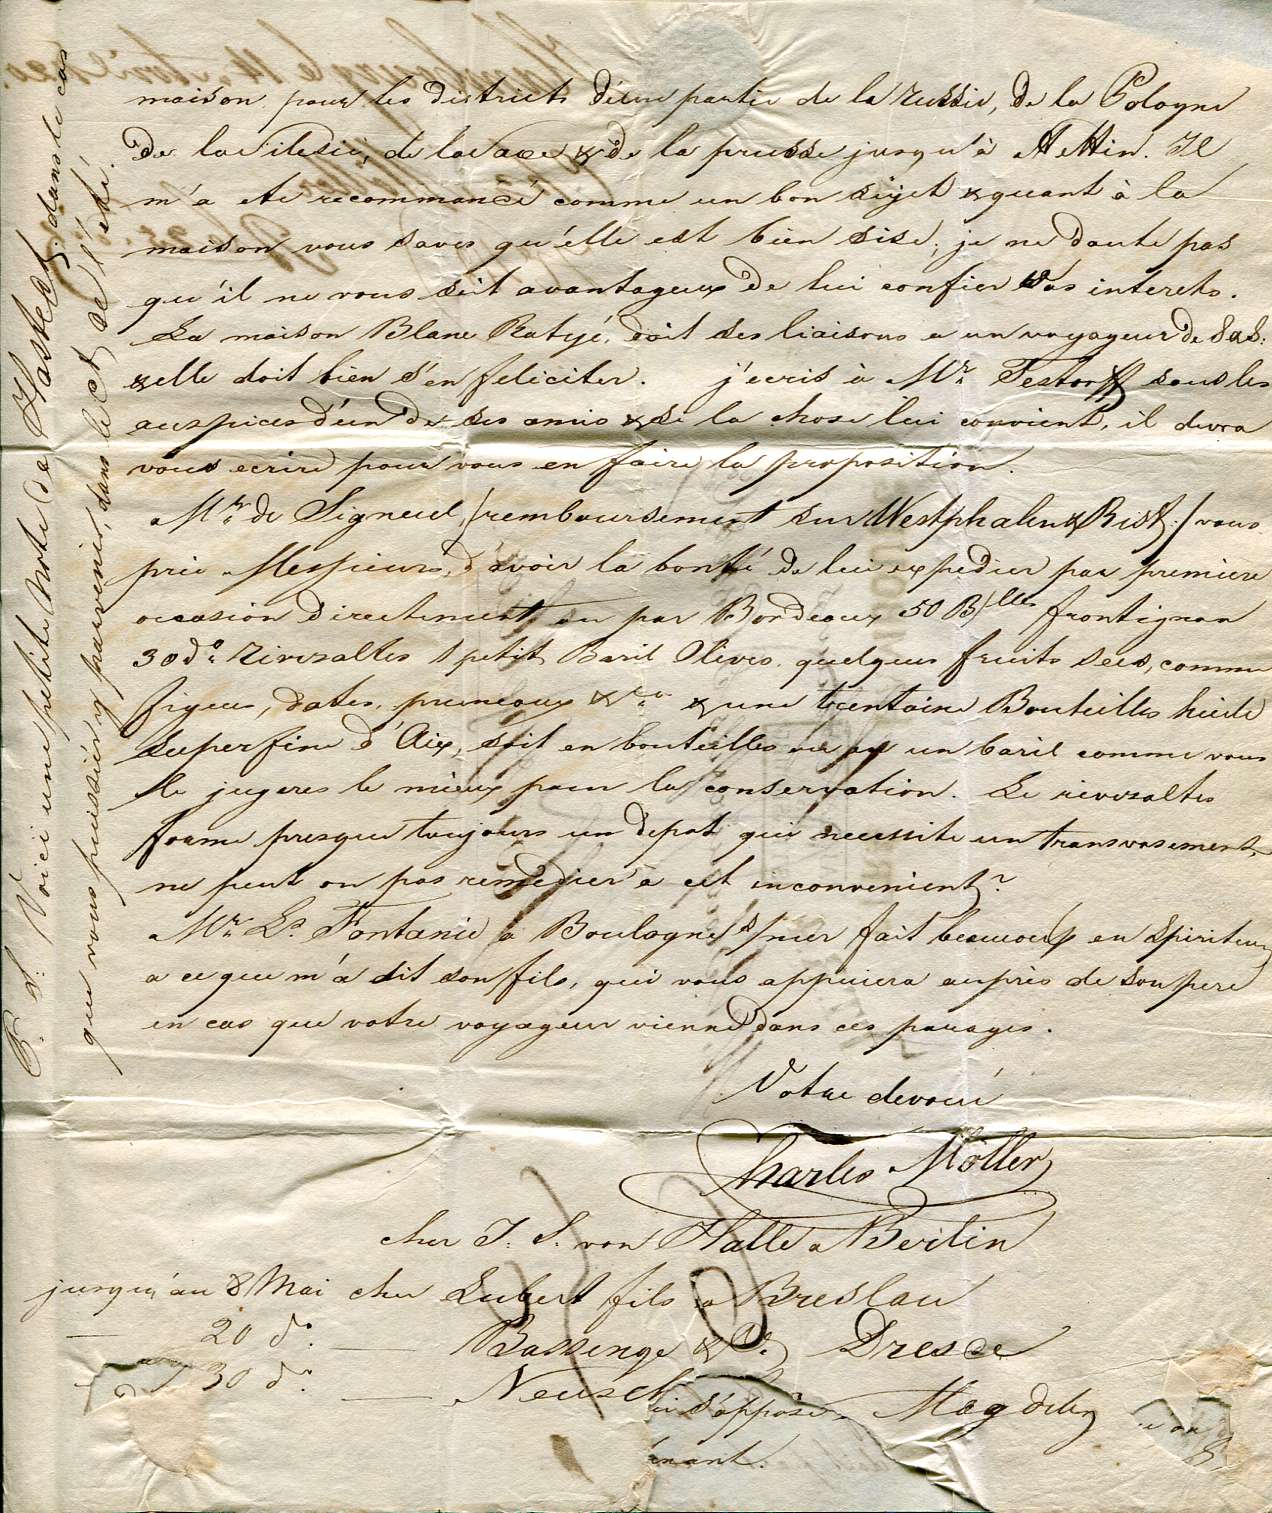 maison pour les districts d'une partie de la russie, de la Pologne
de la Silesie, de la Saxe & de la prusse jusqu'à Stettin. Il
m'a eté recommandé comme un bon sujet & quant à la
maison vous saves qu'elle est bien sise, je ne doute pas
qu'il ne vous soit avantageux de lui confier vos interets.
La maison Blanc Ratyé, doit ses liaisons a un voyageur de
& elle doit bien s'en feliciter. j'ecris à Mr. Testorff sous les
auspices d'un de ses amis & si la chose lui convient, il devra
vous ecrire pour vous en faire la proposition.
Mr. de Signeul, /remboursement sur Westphalen & Rist / vous
prie Messieurs, d'avoir la bonté de lui expedier par premiere
occasion directement ou par Bordeaux 50 B/lles frontignan
30 do. rivesaltes 1 petit Baril Olives, quelques fruits secs, comme
figues, dates, pruneaux &ca. & une trentaine Bouteilles huile
superfine d'Aix, soit en bouteilles ou en un baril comme vous
le jugeres le mieux pour la conservation. Le rivesaltes
forme presque toujours un depot qui necessite un transvasement,
ne peut on pas remedier à cet inconvenient?
Mr. Ls. Fontanie a Boulogne s/mer fait beaucoup en Spiritueux
a ce que m'a dit son fils, qui vous appuiera auprès de son pere
en cas que votre voyageur vienne dans ces parages.
Votre devoué
Charles Möller
cher J. S. von Halle a Berlin
jusqu'au 8 Mai cher Lubert fils a Breslau
— 20 do. — Bassenge & Co. Dresde
— 30 do. — Neusch Magdebg
s'oppose
P. S. Voici une petite Note de Hasterf, dans le cas
que vous puissiés y parvenir, dans le ct. de l'eté.
Hambourg le 14 Avril